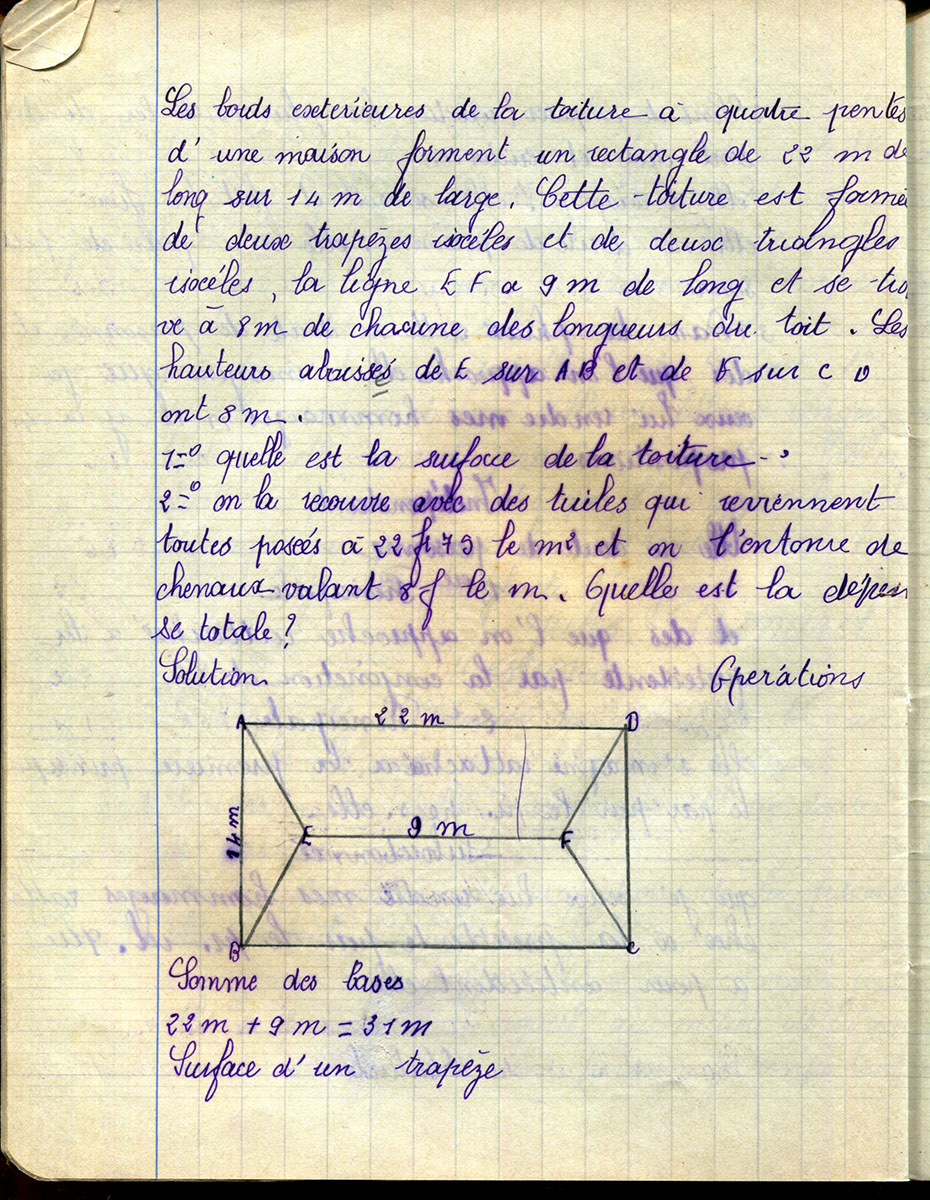 Les bords exterieures de la toiture à quatre pentes
d'une maison forment un rectangle de 22 m de
long sur 14 m de large. Cette toiture est formé
de deux trapèzes isocéles et de deux triangles
isocéles, la ligne EF a 9 m de long et se trou
ve à 8 m de chacune des longueurs du toit. Les
hauteurs abaissés de E sur AB et de F sur C D
ont 8 m.
1=° quelle est la surface de la toiture
2=° on la recouvre avec des tuiles qui reviennent
toutes posées à 22 f, 75 le m² et on l'entoure de
chenaux valant 8 f le m. Quelle est la dépen
se totale?
Solution Opérations
A 22 m D
14 m E 9 m F
B C
Somme des bases
22 m + 9 m = 31 m
Surface d'un trapèze